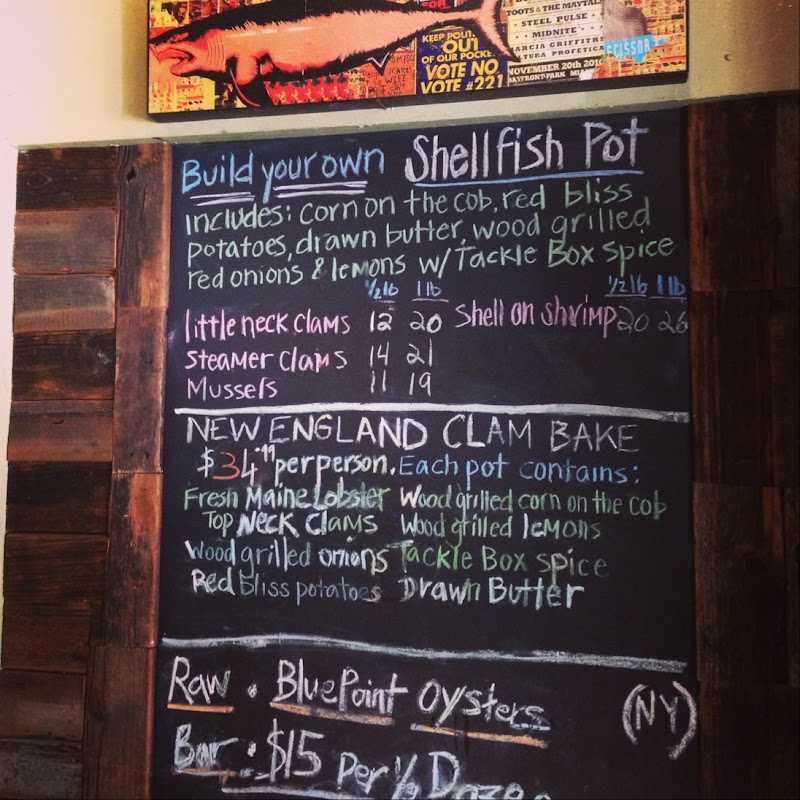 KEEP POLIT
OUT
OF OUR POCKE
VOTE NO
VOTE #221
TOOTS & THE MAYTALS
- STEEL PULSE -
MIDNITE
MARCIA GRIFFITHS
NOVEMBER 20th 2010
BAYFRONT PARK MIA
SCISSOR
Build your own Shellfish Pot
includes: corn on the cob, red bliss
potatoes, drawn butter, wood grilled
red onions & lemons w/ Tackle Box spice
1/2 lb 1 lb
little neck clams 12 20
Steamer clams 14 21
Mussels 11 19
1/2 lb 1 lb
Shell on shrimp 20 26
NEW ENGLAND CLAM BAKE
$34.99 per person. Each pot contains:
Fresh Maine Lobster Wood grilled corn on the cob
Top Neck Clams Wood grilled lemons
Wood grilled onions Tackle Box spice
Red bliss potatoes Drawn Butter
Raw . BluePoint Oysters (NY)
Bar . $15 Per 1/2 Dozen